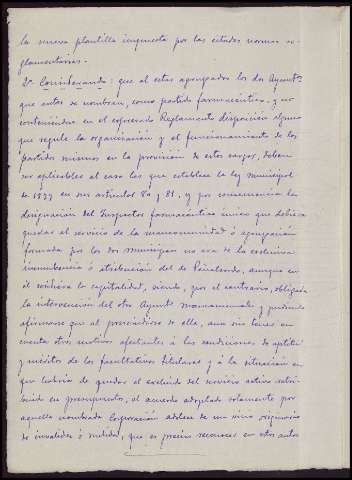 la nueva plantilla impuesta por las citadas normas re-
glamentarias.
2º Considerando: que al estar agrupados los dos Ayuntºˢ
que antes se nombran, como partido farmaceutico, y no
conteniendose en el expresado Reglamento disposición alguna
que regule la organización y el funcionamiento de los
partidos mismos en la provisión de estos cargos, deben
ser aplicables al caso las que establece la ley municipal
de 1877 en sus articulos 80 y 81, y por consecuencia la
designación del Inspector farmaceutico unico que debiera
quedar al servicio de la mancomunidad ó agrupación
formada por los dos municipios no era de la exclusiva
incumbencia ó atribución del de Peñalsordo, aunque en
el residiera la capitalidad, siendo, por el contrario, obligada
la intervención del otro Ayuntº mancomunado, y pudiendo
afirmarse que al prescindirse de ella, aun sin tener en
cuenta otros motivos afectantes á las condiciones de aptitud
y meritos de los facultativos titulares y á la situación en
que habria de quedar el excluido del servicio activo retri-
buido en presupuesto, el acuerdo adoptado solamente por
aquella nombrada Corporación adolece de un vicio originario
de invalidez ó nulidad, que es preciso reconocer en estos autos